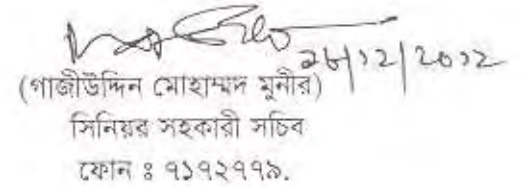 ২৬/১২/২০১২
(গাজীউদ্দিন মোহাম্মদ মুনীর)
সিনিয়র সহকারী সচিব
ফোন ঃ ৭১৭২৭৭৯.